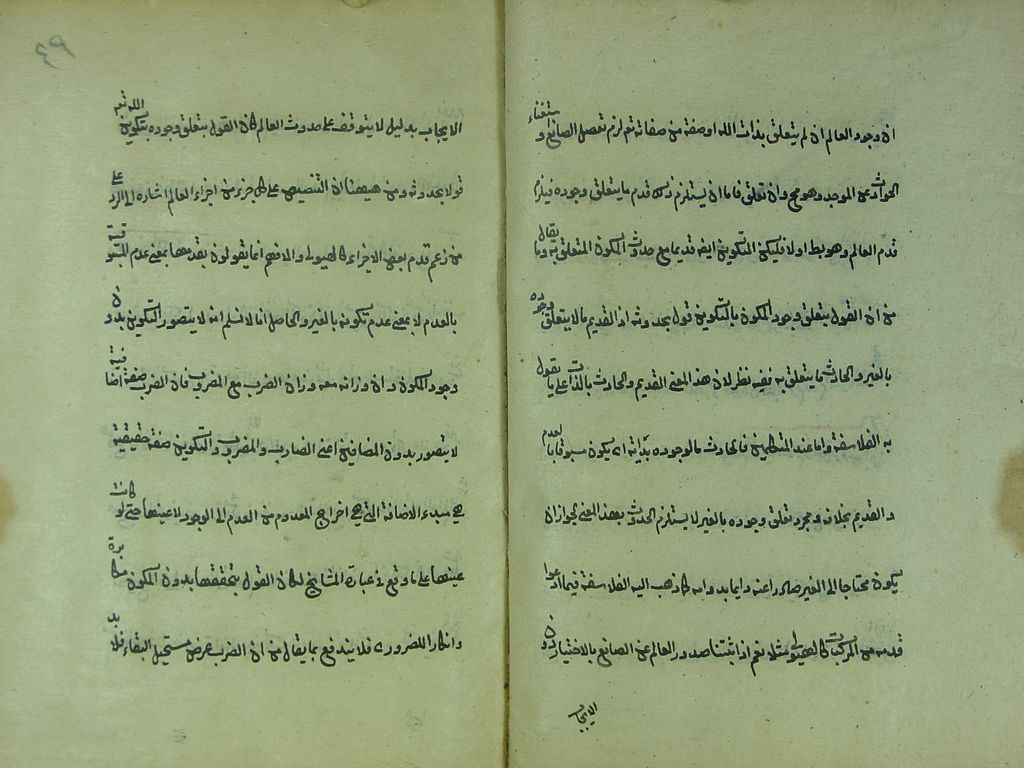 ان وجود العالم ان لم يتعلق بذات الله او صفة من صفاته تع لزم تعطل الصانع و ستغناء
الحوادث عن الموجد وهو مح وان تعلق فاما ان يستلزم ذلك قدم ما يتعلق وجوده فيلزم
قدم العالم وهو بط اولا فليكن التكوين ايضا قديما مع حدوث المكون المتعلق به وما يقال
من ان القول بتعلق وجود المكون بالتكوين قول بحدوثه اذ القديم مالا يتعلق وجوده
بالغير والحادث ما يتعلق به ففيه نظر لان هذا المعنى القديم والحادث بالذات على ما يقول
به الفلاسفة واما عند المتكلمين فالحادث ما لوجوده بداية اى يكون مسبوقا بالعدم
والقديم بخلافه ومجرد تعلق وجوده بالغير لا يستلزم الحدوث بهذا المعنى لجواز ان
يكون محتاجا الى الغير صادرا عنه دايما بدوامه كما ذهب اليه الفلاسفة فيما ادعوا
قدمه من المركبات كالهيولى مثلا نعم اذا اثبتنا صدور العالم عن الصانع بالاختيار دون
الايجاب
٤٩
الايجاب بدليل لا يتوقف على حدوث العالم كان القول بتعلق وجوده بتكوين الله تع
قولا بحدوثه ومن ههنا ان التنصيص على كل جزء من اجزاء العالم اشاره الى الرد على
من زعم قدم بعض الاجزاء كالهيولى والا فهم انما يقولون بقدمها بمعنى عدم المسبوقية
بالعدم لا بمعنى عدم تكونه بالغير والحاصل انا لا نسلم انه لا يتصور التكوين بدون
وجود المكون وان وزانه معه وزان الضرب مع المضروب فان الضرب صفة اضافية
لا يتصور بدون المضافين اعنى الضارب والمضروب والتكوين صفة حقيقية
هى مبدء الاضافة التى هى اخراج المعدوم من العدم الى الوجود لا عينها حتى لو كانت
عينها على ما وقع فى عبارة المشايخ لكان القول بتحققها بدون المكون مكابرة
وانكارا للضرورى فلا يندفع بما يقال من ان الضرب عرض مستحيل البقاء فلا بد